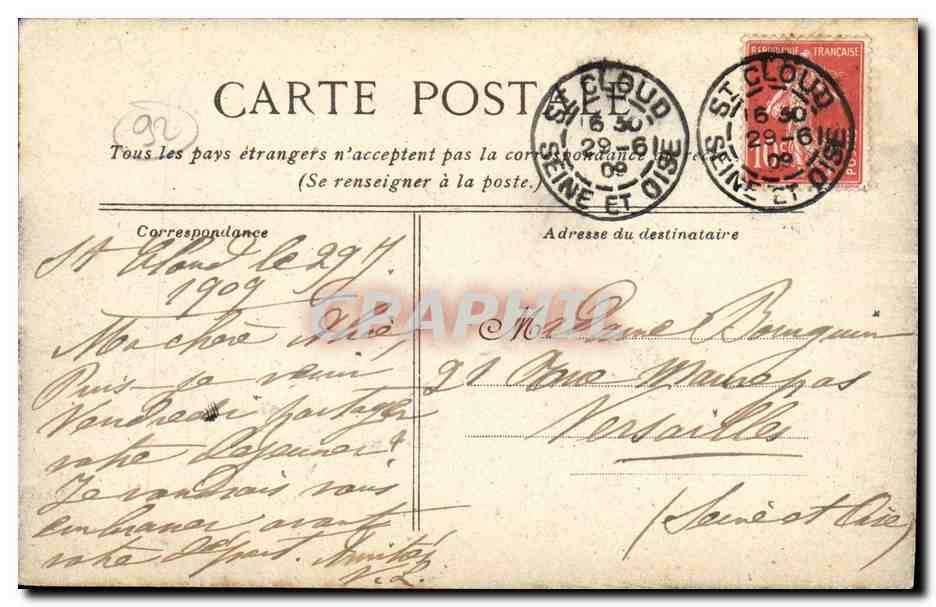 CARTE POSTALE
(92)
Tous les pays étrangers n'acceptent pas la correspondance au recto
(Se renseigner à la poste.)
ST CLOUD
16 30
29-6
09
SEINE ET OISE
ST CLOUD
16 30
29-6
09
SEINE ET OISE
REPUBLIQUE FRANÇAISE
10 c
POSTES
Correspondance
St Cloud le 29 J.
1909
Ma chère
Puis-je venir,
Vendredi partager
votre déjeuner?
Je voudrais vous
embrasser avant
votre départ. Amitiés
V. L.
Adresse du destinataire
Madame Bourguin
21 Rue Maurepas
Versailles
(Seine et Oise)
CPAPHIL